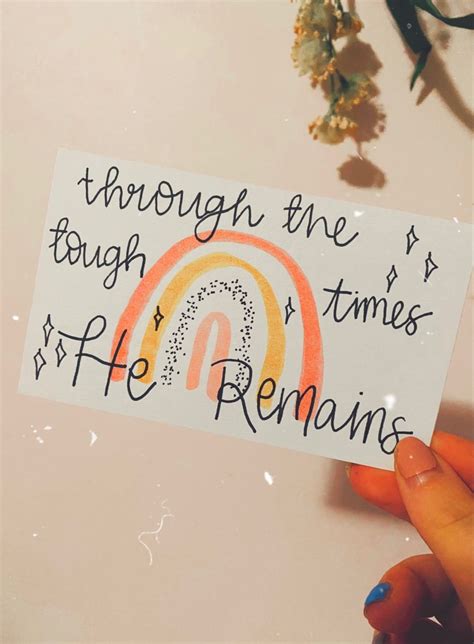 through the
tough times
He Remains